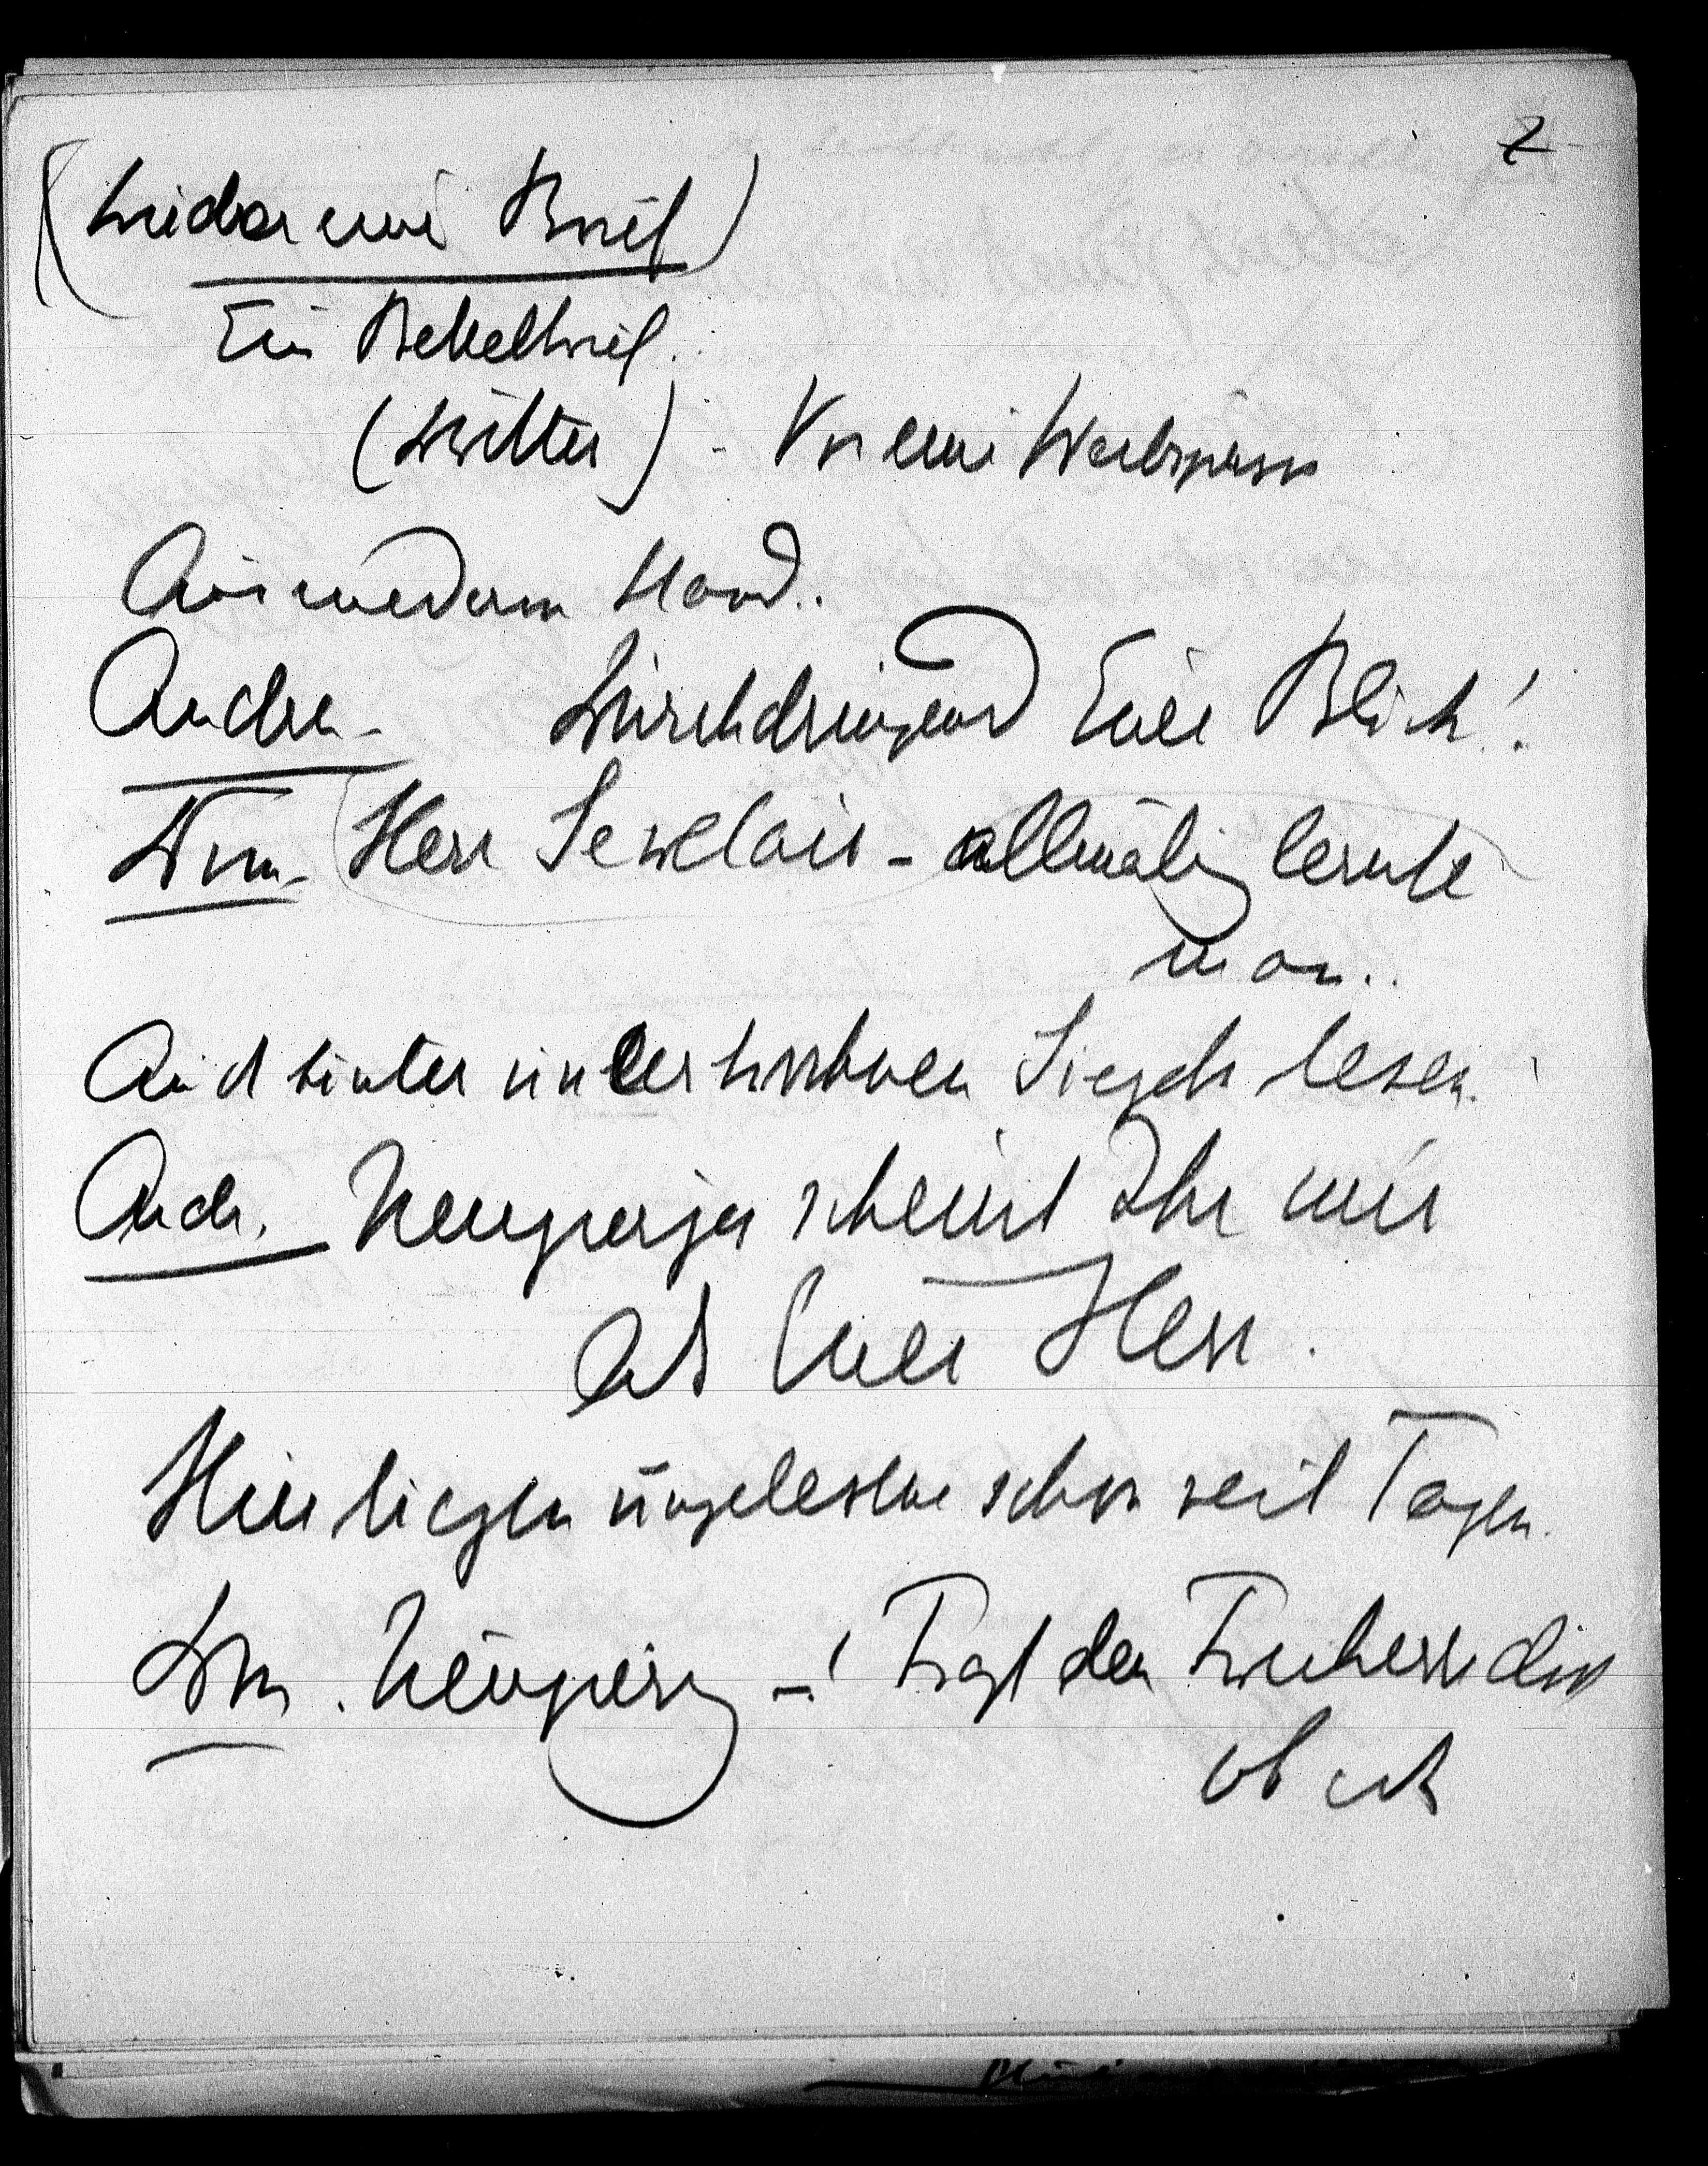 2
(Wieder ein Brief)
Ein Bettelbrief.
(dritter) - Von einer Weibsperson
Aus niederm Stand..
Andrea - Durchdringend Euer Blick!
Dom - Herr Sekretair - allmälig lernte
man..
Auch hinter unerbrochnen Siegeln lesen.
Andr. Neugieriger scheint Ihr mir
als Euer Herr.
Hier liegen ungelesene schon seit Tagen.
Dom. Neugierig -! Fragt den Freiherrn doch
ob ich